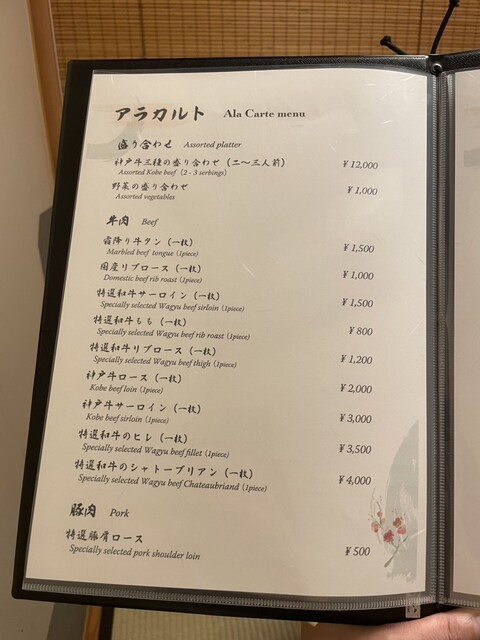 アラカルト Ala Carte menu
盛り合わせ Assorted platter
神戸牛三種の盛り合わせ（二～三人前） ¥12,000
Assorted Kobe beef (2 - 3 serbings)
野菜の盛り合わせ ¥1,000
Assorted vegetables
牛肉 Beef
霜降り牛タン（一枚） ¥1,500
Marbled beef tongue (1piece)
国産リブロース（一枚） ¥1,000
Domestic beef rib roast (1piece)
特選和牛サーロイン（一枚） ¥1,500
Specially selected Wagyu beef sirloin (1piece)
特選和牛もも（一枚） ¥800
Specially selected Wagyu beef rib roast (1piece)
特選和牛リブロース（一枚） ¥1,200
Specially selected Wagyu beef thigh (1piece)
神戸牛ロース（一枚） ¥2,000
Kobe beef loin (1piece)
神戸牛サーロイン（一枚） ¥3,000
Kobe beef sirloin (1piece)
特選和牛のヒレ（一枚） ¥3,500
Specially selected Wagyu beef fillet (1piece)
特選和牛のシャトーブリアン（一枚） ¥4,000
Specially selected Wagyu beef Chateaubriand (1piece)
豚肉 Pork
特選豚肩ロース ¥500
Specially selected pork shoulder loin